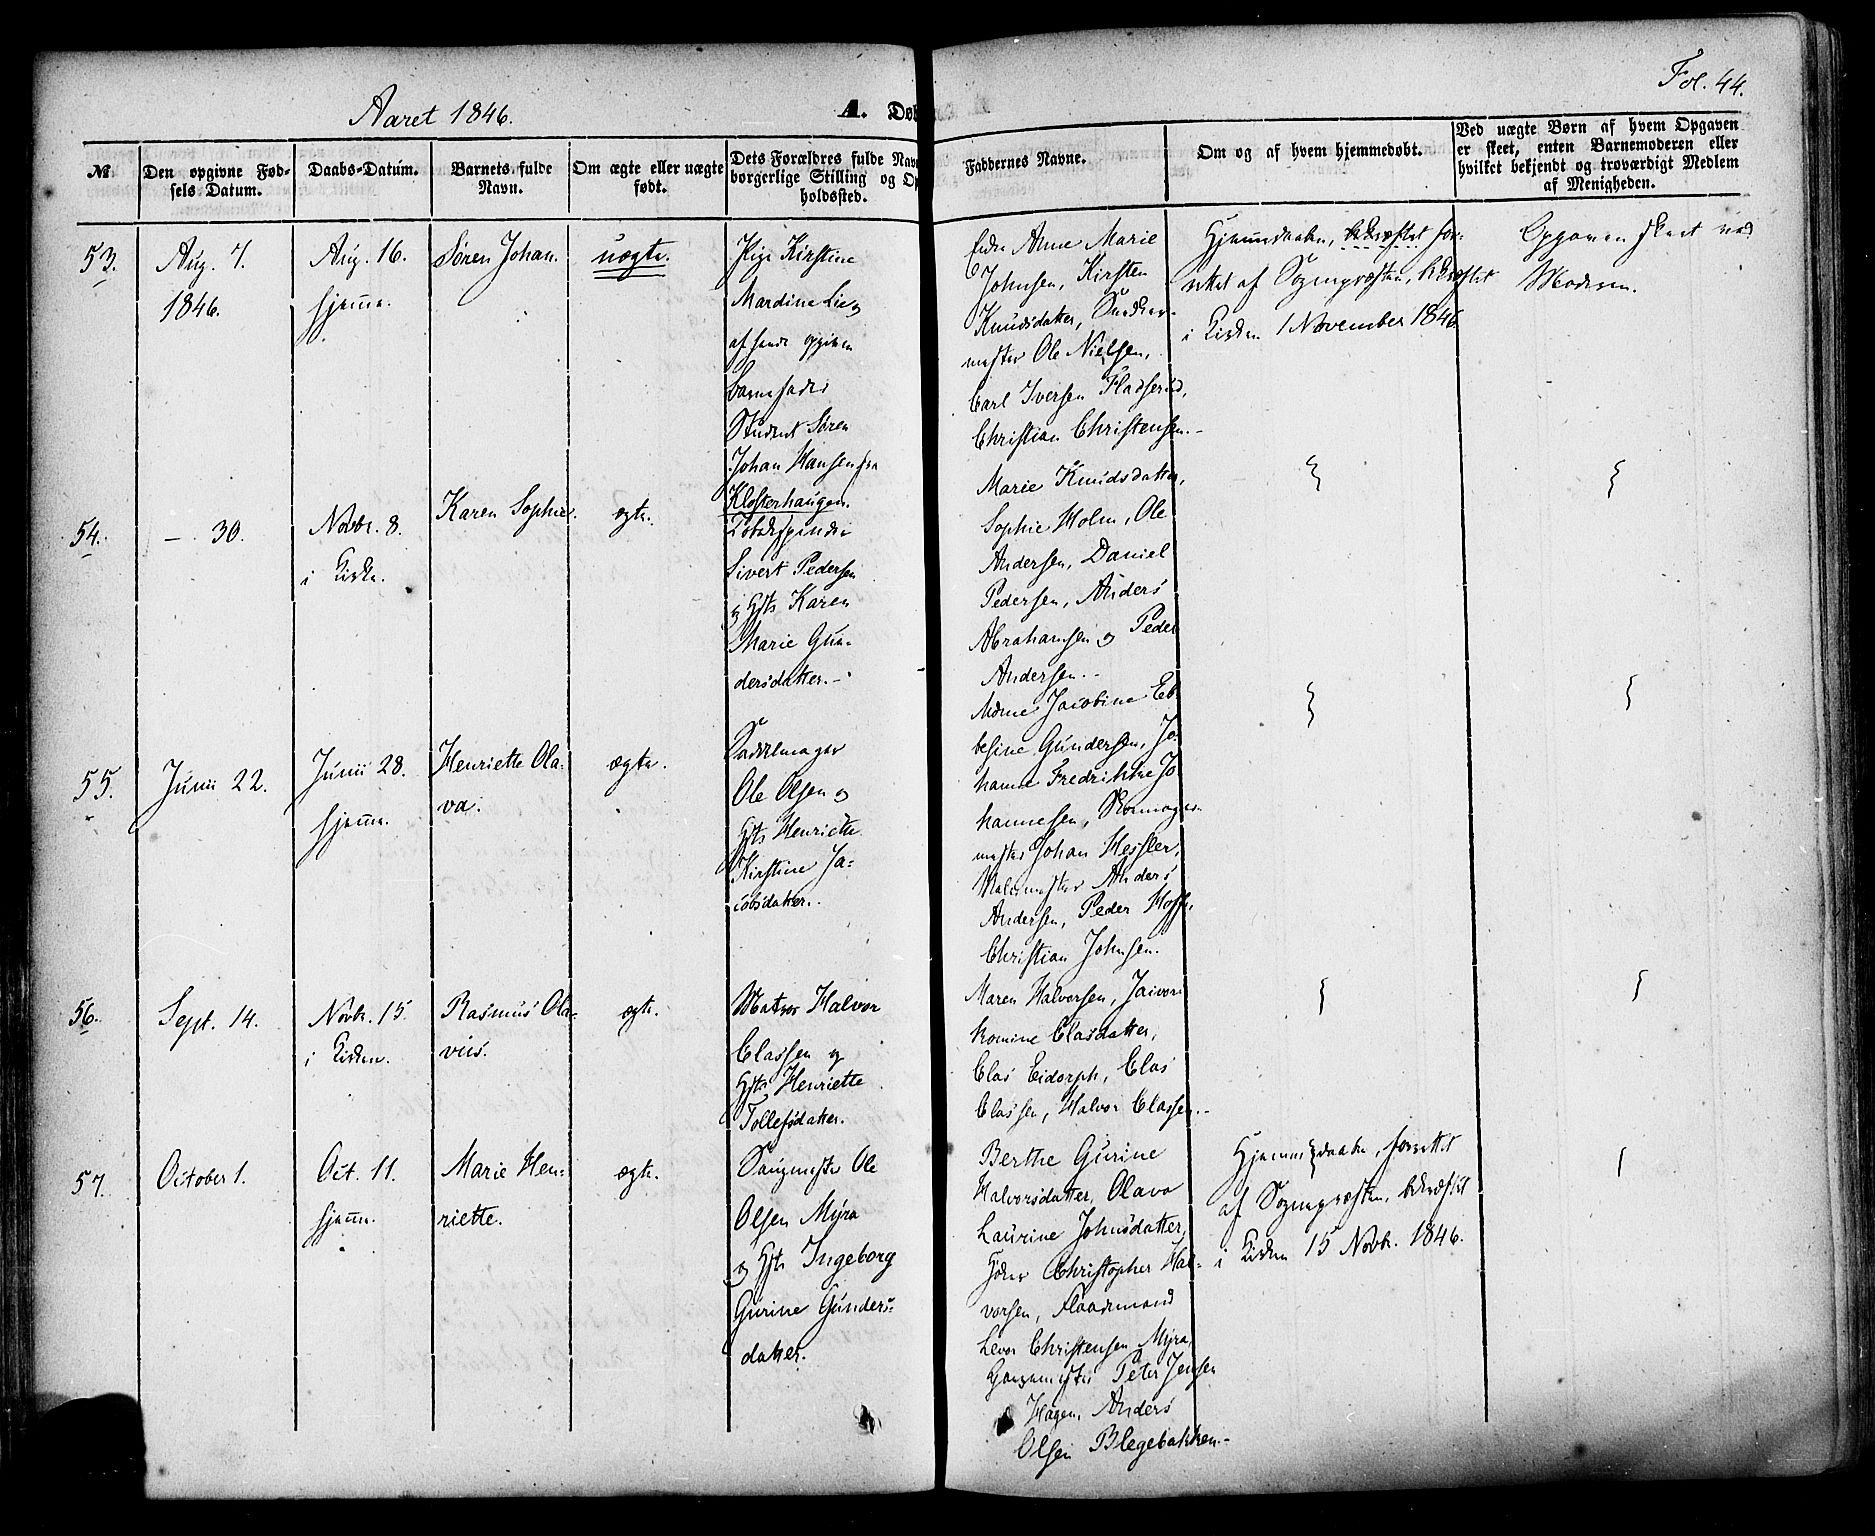 Aaret 1846.
A. Døb
Fol. 44.
№
Den opgivne Fød-
sels Datum.
Daabs-Datum.
Barnets fulde
Navn.
Om ægte eller uægte
født.
Dets Forældres fulde Nav
borgerlige Stilling og Op
holdssted.
Faddernes Navne.
Om og af hvem hjemmedøbt.
Ved uægte Børn af hvem Opgaven
er skeet, enten Barnemoderen eller
hvilket bekjendt og troværdigt Medlem
af Menigheden.
53.
Aug. 7.
1846.
Aug. 16.
hjemme.
Søren Johan.
uægte.
Pige Kirstine
Mardine Lie og
af hende opgiven
Barnefader
Student Søren
Johan Hansen fra
Klosterhaugen.
Anne Marie
Johnsen, Kirsten
Knudsdatter, Snedker-
mester Ole Nielsen,
Carl Iversen Fladserud,
Christian Christensen.-
Hjemmedaaben, bekræftet for-
rettet af Sognepræsten, bekræftet
i Kirken 1 November 1846.
Opgaven skeet ved
Moderen.
54.
- 30.
Novbr. 8.
i Kirken.
Karen Sophie.
ægte.
Tobakspinder
Sivert Pedersen
og Hst. Karen
Marie Gun-
dersdatter.-
Marie Knudsdatter,
Sophie Holm, Ole
Andersen, Daniel
Pedersen, Anders
Abrahamsen og Peder
Andersen.-
55.
Junii 22.
Junii 28.
hjemme.
Henriette Ola-
va.
ægte.
Sadelmager
Ole Olsen og
Hst. Henriette
Kirstine Ja-
cobsdatter.
Mdme Jacobine Eb-
besine Gundersen, Jo-
hanne Fredrikke Jo-
hannesen, Skomager-
mester Johan Hessler,
Malermester Anders
Andersen, Peder Hoff,
Christian Johnsen.
56.
Sept. 14.
Novbr. 15.
i Kirken.
Rasmus Ola-
vus.
ægte.
Matros Halvor
Classen og
Hst. Henriette
Tollefsdatter.
Maren Halvorsen,
Romine Clasdatter,
Clas Eidorph, Clas
Classen, Halvor Classen.-
57.
October 1.
Oct. 11.
hjemme.
Marie Hen-
riette.
ægte.
Saugmester Ole
Olsen Myra
og Hst. Ingeborg
Gurine Gunders-
datter.
Berthe Gurine
Halvorsdatter, Olava
Laurine Johnsdatter,
Christopher Hal-
vorsen,
Levor Christensen Myra,
Peter Jensen
Hagen, Anders
Olsen Blegebakken.-
Hjemmedaaben, forrettet
af Sognepræsten, bekræftet
i Kirken 15 Novbr. 1846.